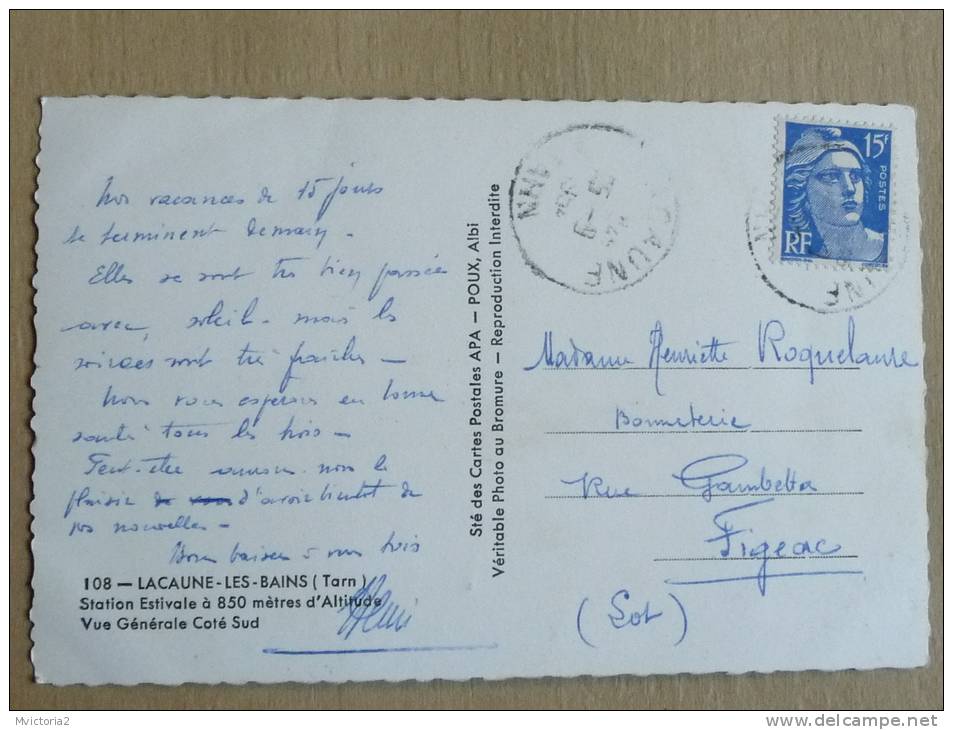 Nos vacances de 15 jours
se terminent demain -
Elles se sont très bien passées
avec soleil - mais les
soirées sont très fraîches -
Nous vous espérons en bonne
santé tous les trois -
Peut-être aurons-nous le
plaisir d'avoir bientôt de
vos nouvelles -
Bons baisers à vous trois
108 — LACAUNE-LES-BAINS (Tarn)
Station Estivale à 850 mètres d'Altitude
Vue Générale Coté Sud
Sté des Cartes Postales APA — POUX, Albi
Véritable Photo au Bromure — Reproduction Interdite
LACAUNE
15F
POSTES
RF
Madame Henriette Roquelaure
Bonneterie
Rue Gambetta
Figeac
(Lot)
Mvictoria2
www.delcampe.net